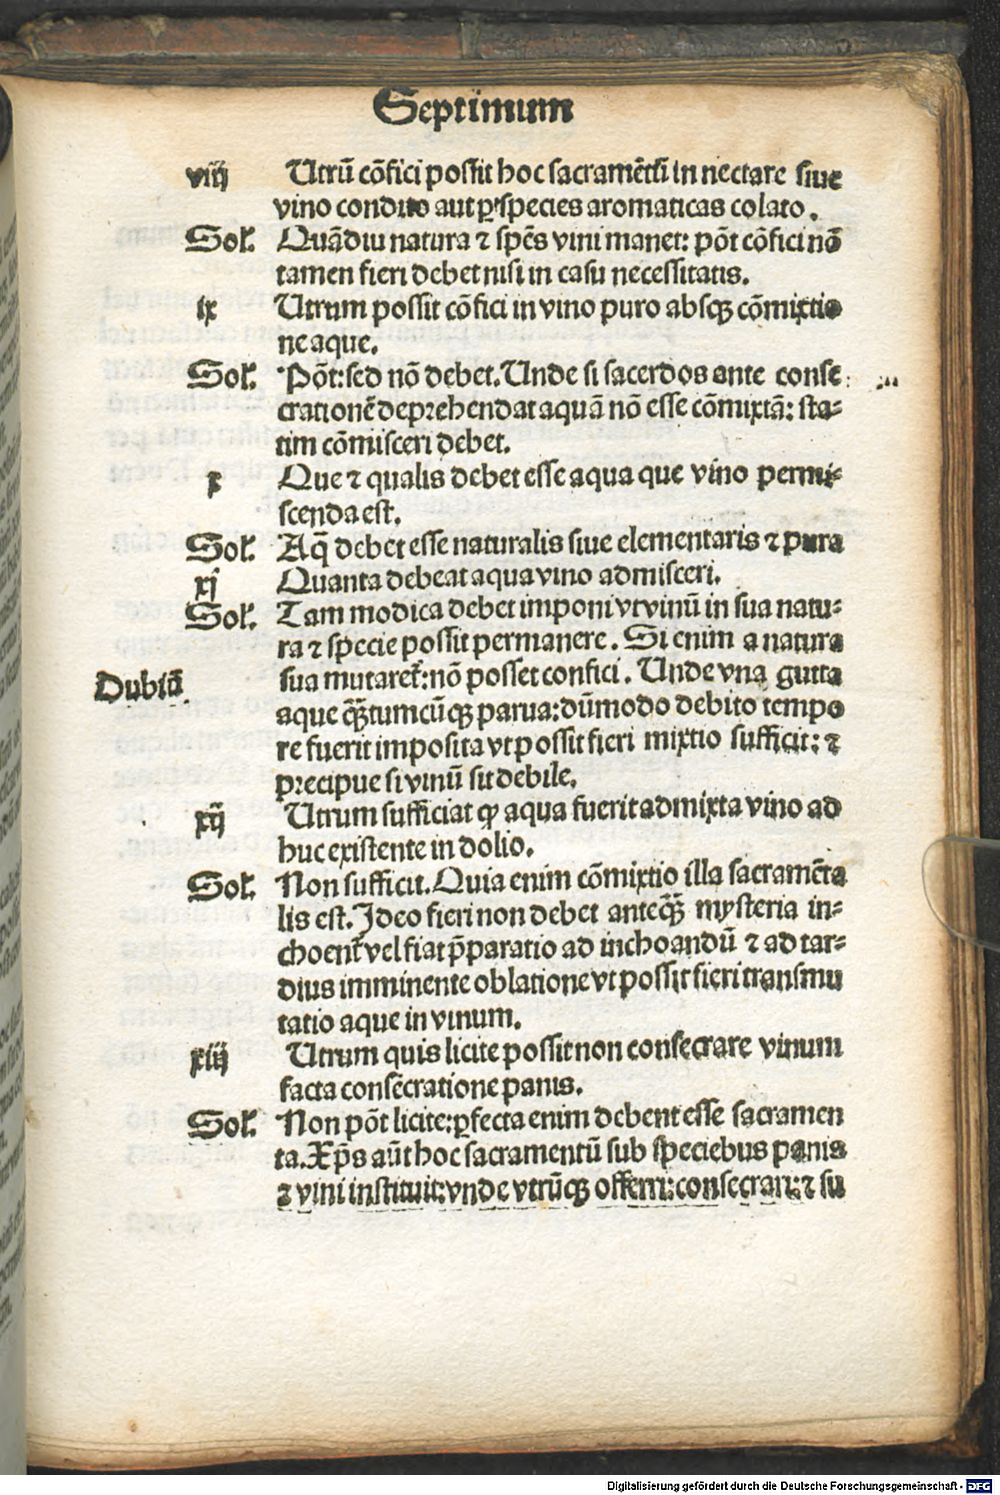 Septimum
viij Utrū cōfici possit hoc sacramētū in nectare siue
vino condito aut ꝑ species aromaticas colato.
Sol. Quādiu natura ⁊ spēs vini manet: pōt cōfici nō
tamen fieri debet nisi in casu necessitatis.
ix Utrum possit cōfici in vino puro absqꝫ cōmixtio
ne aque.
Sol. Pōt: sed nō debet. Unde si sacerdos ante conse
crationē deprehendat aquā nō esse cōmixtā: sta⸗
tim cōmisceri debet.
x Que ⁊ qualis debet esse aqua que vino permi⸗
scenda est.
Sol. Aq̄ debet esse naturalis siue elementaris ⁊ pura
xj Quanta debeat aqua vino admisceri.
Sol. Tam modica debet imponi vt vinū in sua natu⸗
ra ⁊ specie possit permanere. Si enim a natura
Dubiū sua mutaret̄: nō posset confici. Unde vna gutta
aque qꝫ̄tumcūqꝫ parua: dūmodo debito tempo
re fuerit imposita vt possit fieri mixtio sufficit: ⁊
precipue si vinū sit debile.
xij Utrum sufficiat ꝙ aqua fuerit admixta vino ad
huc existente in dolio.
Sol. Non sufficit. Quia enim cōmixtio illa sacramēta
lis est. Ideo fieri non debet anteqꝫ̄ mysteria in⸗
choent̄ vel fiat p̄paratio ad inchoandū ⁊ ad tar⸗
dius imminente oblatione vt possit fieri transmu
tatio aque in vinum.
xiij Utrum quis licite possit non consecrare vinum
facta consecratione panis.
Sol. Non pōt licite: ꝑfecta enim debent esse sacramen
ta. Xp̄s aūt hoc sacramentū sub speciebus panis
⁊ vini instituit: vnde vtrūqꝫ offerri: consecrari: ⁊ su
Digitalisierung gefördert durch die Deutsche Forschungsgemeinschaft - DFG